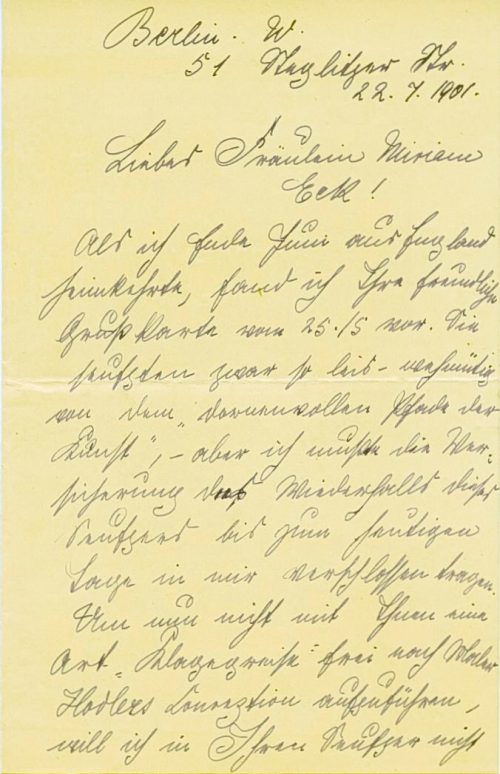 Berlin. W.
51 Steglitzer Str.
22. 7. 1901.
Liebes Fräulein Miriam
Eck!
Als ich Ende Juni aus England
heimkehrte, fand ich Ihre freundliche
Grußkarte vom 25./5 vor. Sie
seufzten zwar so leis-wehmütig
von dem "dornenvollen Pfade der
Kunst", – aber ich mußte die Ver-
sicherung des Wiederhalls dieses
Seufzers bis zum heutigen
Tage in mir verschlossen tragen.
Um nun nicht mit Ihnen eine
Art "Klagegreise" frei nach Maler
Hodlers Conception aufzuführen,
will ich in Ihren Seufzer nicht